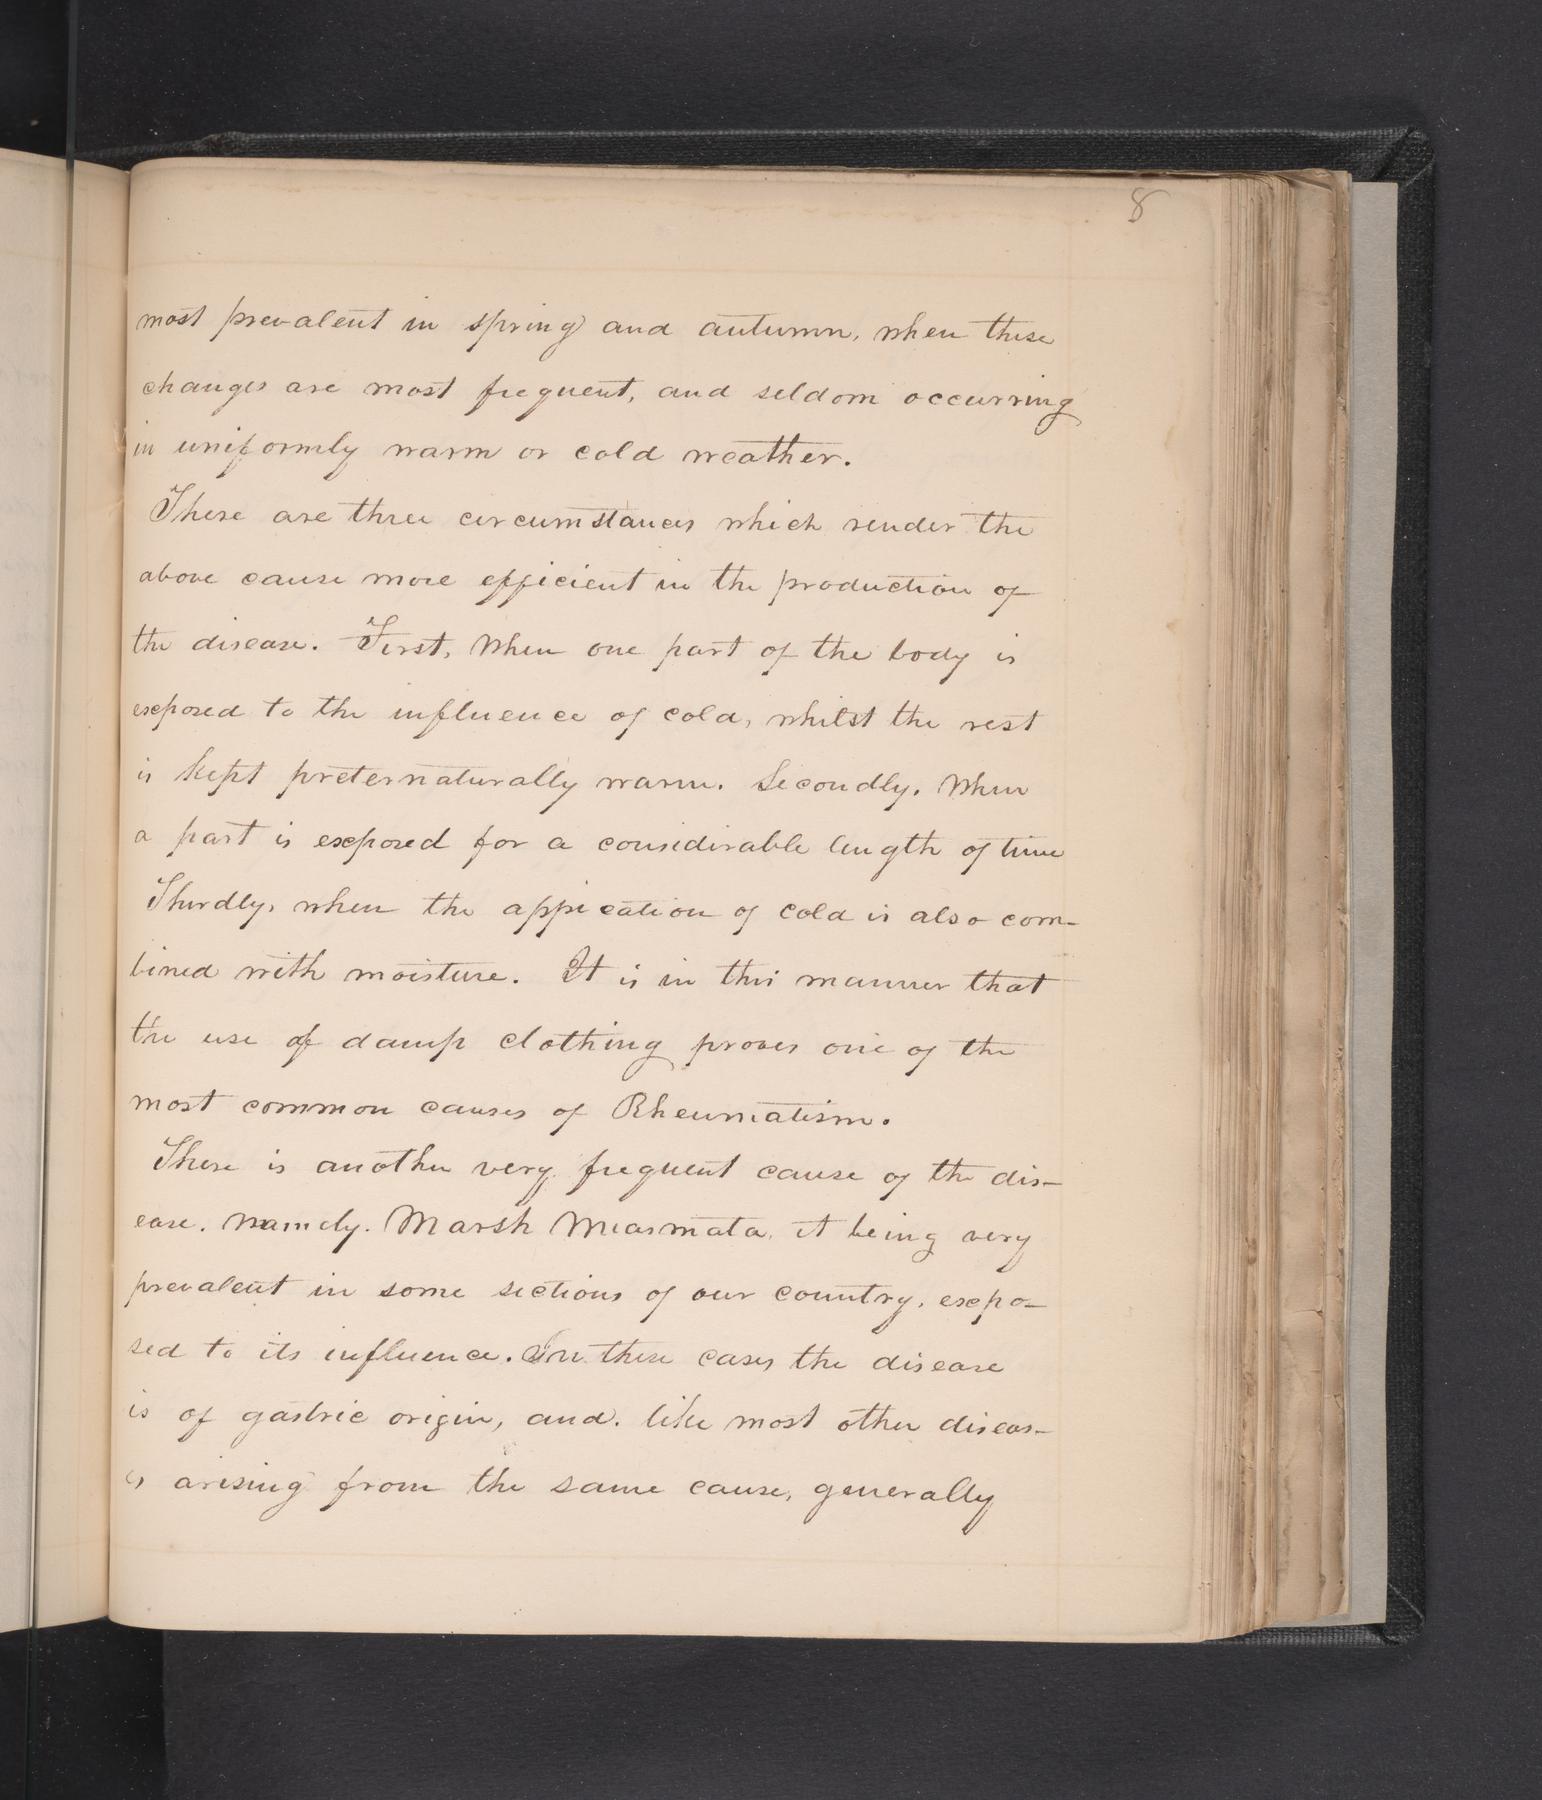 8
most prevalent in spring and autumn, when these
changes are most frequent, and seldom occurring
in uniformly warm or cold weather.
There are three circumstances which render the
above cause more efficient in the production of
the disease. First, When one part of the body is
exposed to the influence of cold, whilst the rest
is kept preternaturally warm. Secondly, When
a part is exposed for a considirable length of time
Thirdly, when the appication of cold is also com-
bined with moisture. It is in this manner that
the use of damp clothing proves one of the
most common causes of Rheumatism.
There is another very frequent cause of the dis-
ease. Namely. Marsh Miasmata, it being very
prevalent in some sections of our country, expo-
sed to its influence. In these cases the disease
is of gastric origin, and. like most other diseas-
es arising from the same cause, generally